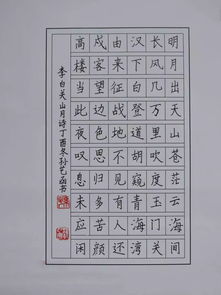 明月出天山苍茫云海间
长风几万里吹度玉门关
汉下白登道胡窥青海湾
由来征战地不见有人还
戍客望边色思归多苦颜
高楼当此夜叹息未应闲
李白关山月诗丁酉冬孙艺函书